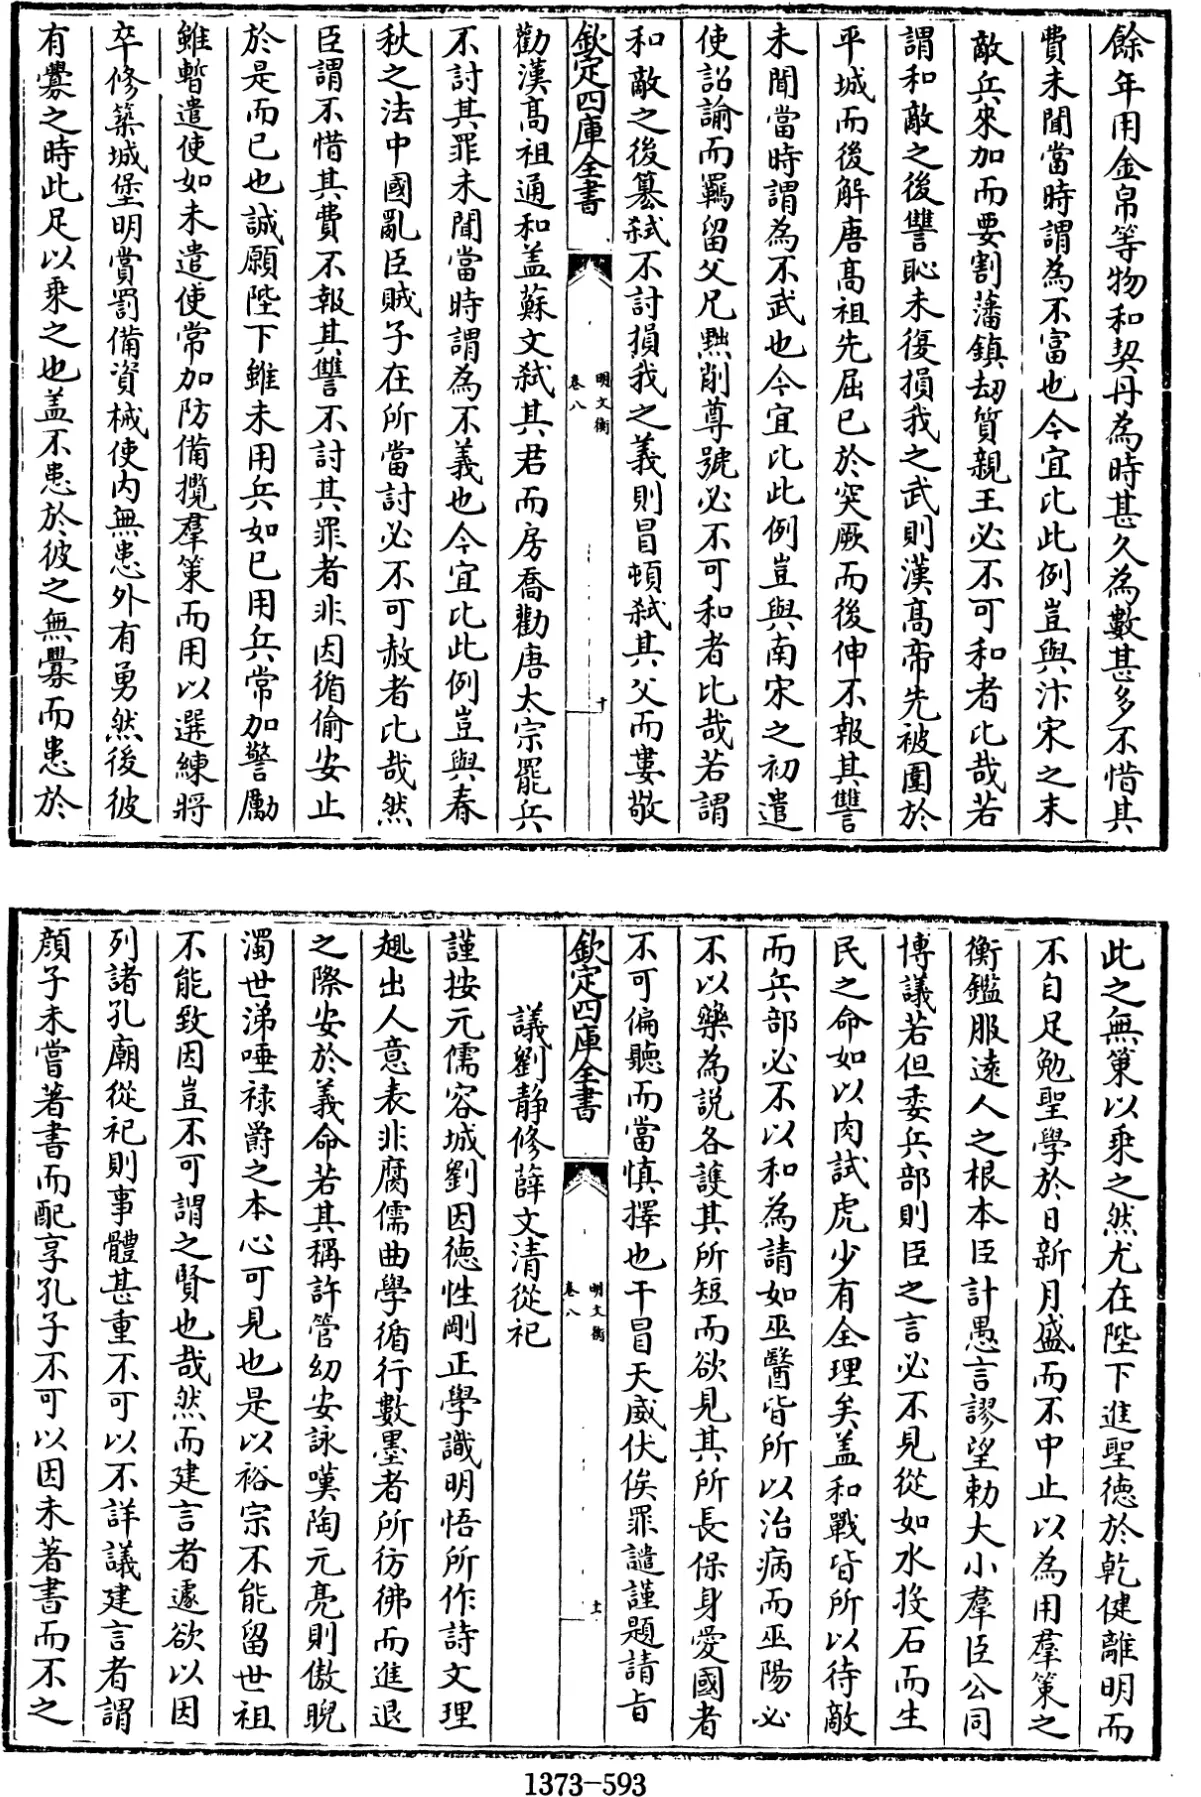 餘年用金帛等物和契丹為時甚久為數甚多不惜其
費未聞當時謂為不富也今宜比此例豈與汴宋之末
敵兵來加而要割藩鎮刼質親王必不可和者比哉若
謂和敵之後讐恥未復損我之武則漢髙帝先被圍於
平城而後解唐髙祖先屈已於突厥而後伸不報其讐
未聞當時謂為不武也今宜比此例豈與南宋之初遣
使詔諭而羈留父兄黜削尊號必不可和者比哉若謂
和敵之後簒弑不討損我之義則冒頓弑其父而婁敬
欽定四庫全書
明文衡
卷八
十
勸漢髙祖通和盖蘇文弑其君而房喬勸唐太宗罷兵
不討其罪未聞當時謂為不義也今宜比此例豈與春
秋之法中國亂臣賊子在所當討必不可赦者比哉然
臣謂不惜其費不報其讐不討其罪者非因循偷安止
於是而已也誠願陛下雖未用兵如已用兵常加警勵
雖暫遣使如未遣使常加防備攬羣策而用以選練將
卒修築城堡明賞罰備資械使内無患外有勇然後彼
有釁之時此足以乘之也盖不患於彼之無釁而患於
此之無策以乘之然尤在陛下進聖德於乾健離明而
不自足勉聖學於日新月盛而不中止以為用羣策之
衡鑑服遠人之根本臣計愚言謬望勅大小羣臣公同
博議若但委兵部則臣之言必不見從如水投石而生
民之命如以肉試虎少有全理矣盖和戰皆所以待敵
而兵部必不以和為請如巫醫皆所以治病而巫陽必
不以藥為説各護其所短而欲見其所長保身愛國者
不可偏聽而當慎擇也干冒天威伏俟罪譴謹題請㫖
欽定四庫全書
明文衡
卷八
十一
議劉静修薛文清從祀
謹按元儒容城劉因德性剛正學識明悟所作詩文理
趣出人意表非腐儒曲學循行數墨者所彷彿而進退
之際安於義命若其稱許管幼安詠嘆陶元亮則傲睨
濁世涕唾禄爵之本心可見也是以裕宗不能留世祖
不能致因豈不可謂之賢也哉然而建言者遽欲以因
列諸孔廟從祀則事體甚重不可以不詳議建言者謂
顔子未嘗著書而配享孔子不可以因未著書而不之
1373-593